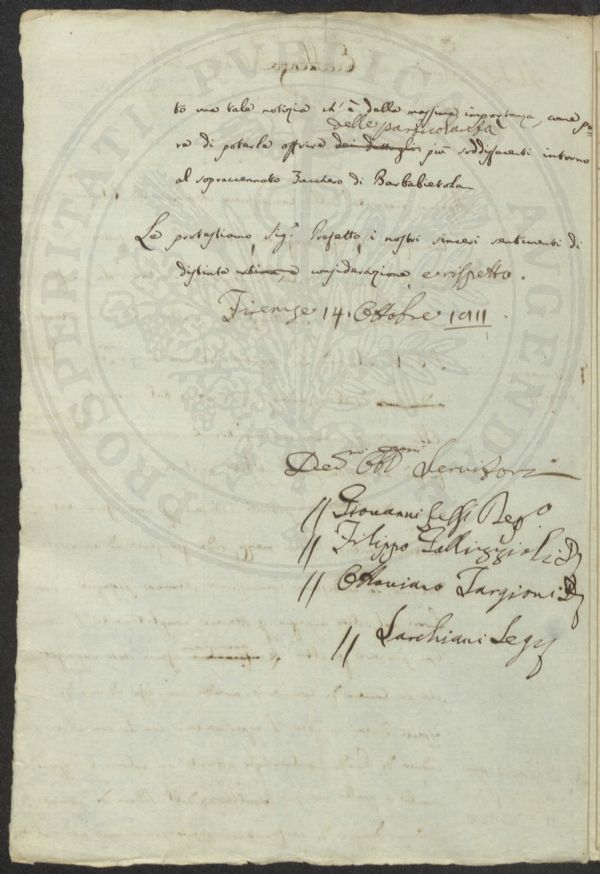 to una tale notizia ch'è della massima importanza, come pu
delle particolarità
re di poterle offrire dei dettagli più soddisfacenti intorno
al sopraccennato Zucchero di Barbabietola
Le protestiamo Sig.r Prefetto, i nostri sinceri sentimenti di
distinta considerazione e rispetto.
Firenze 14. Ottobre 1811
Servitori
// Giovanni Lessi
// Filippo Gallizioli
// Ottaviano Targioni
// Sarchiani Seg
PROSPERITATI PUBLICAE AUGENDAE